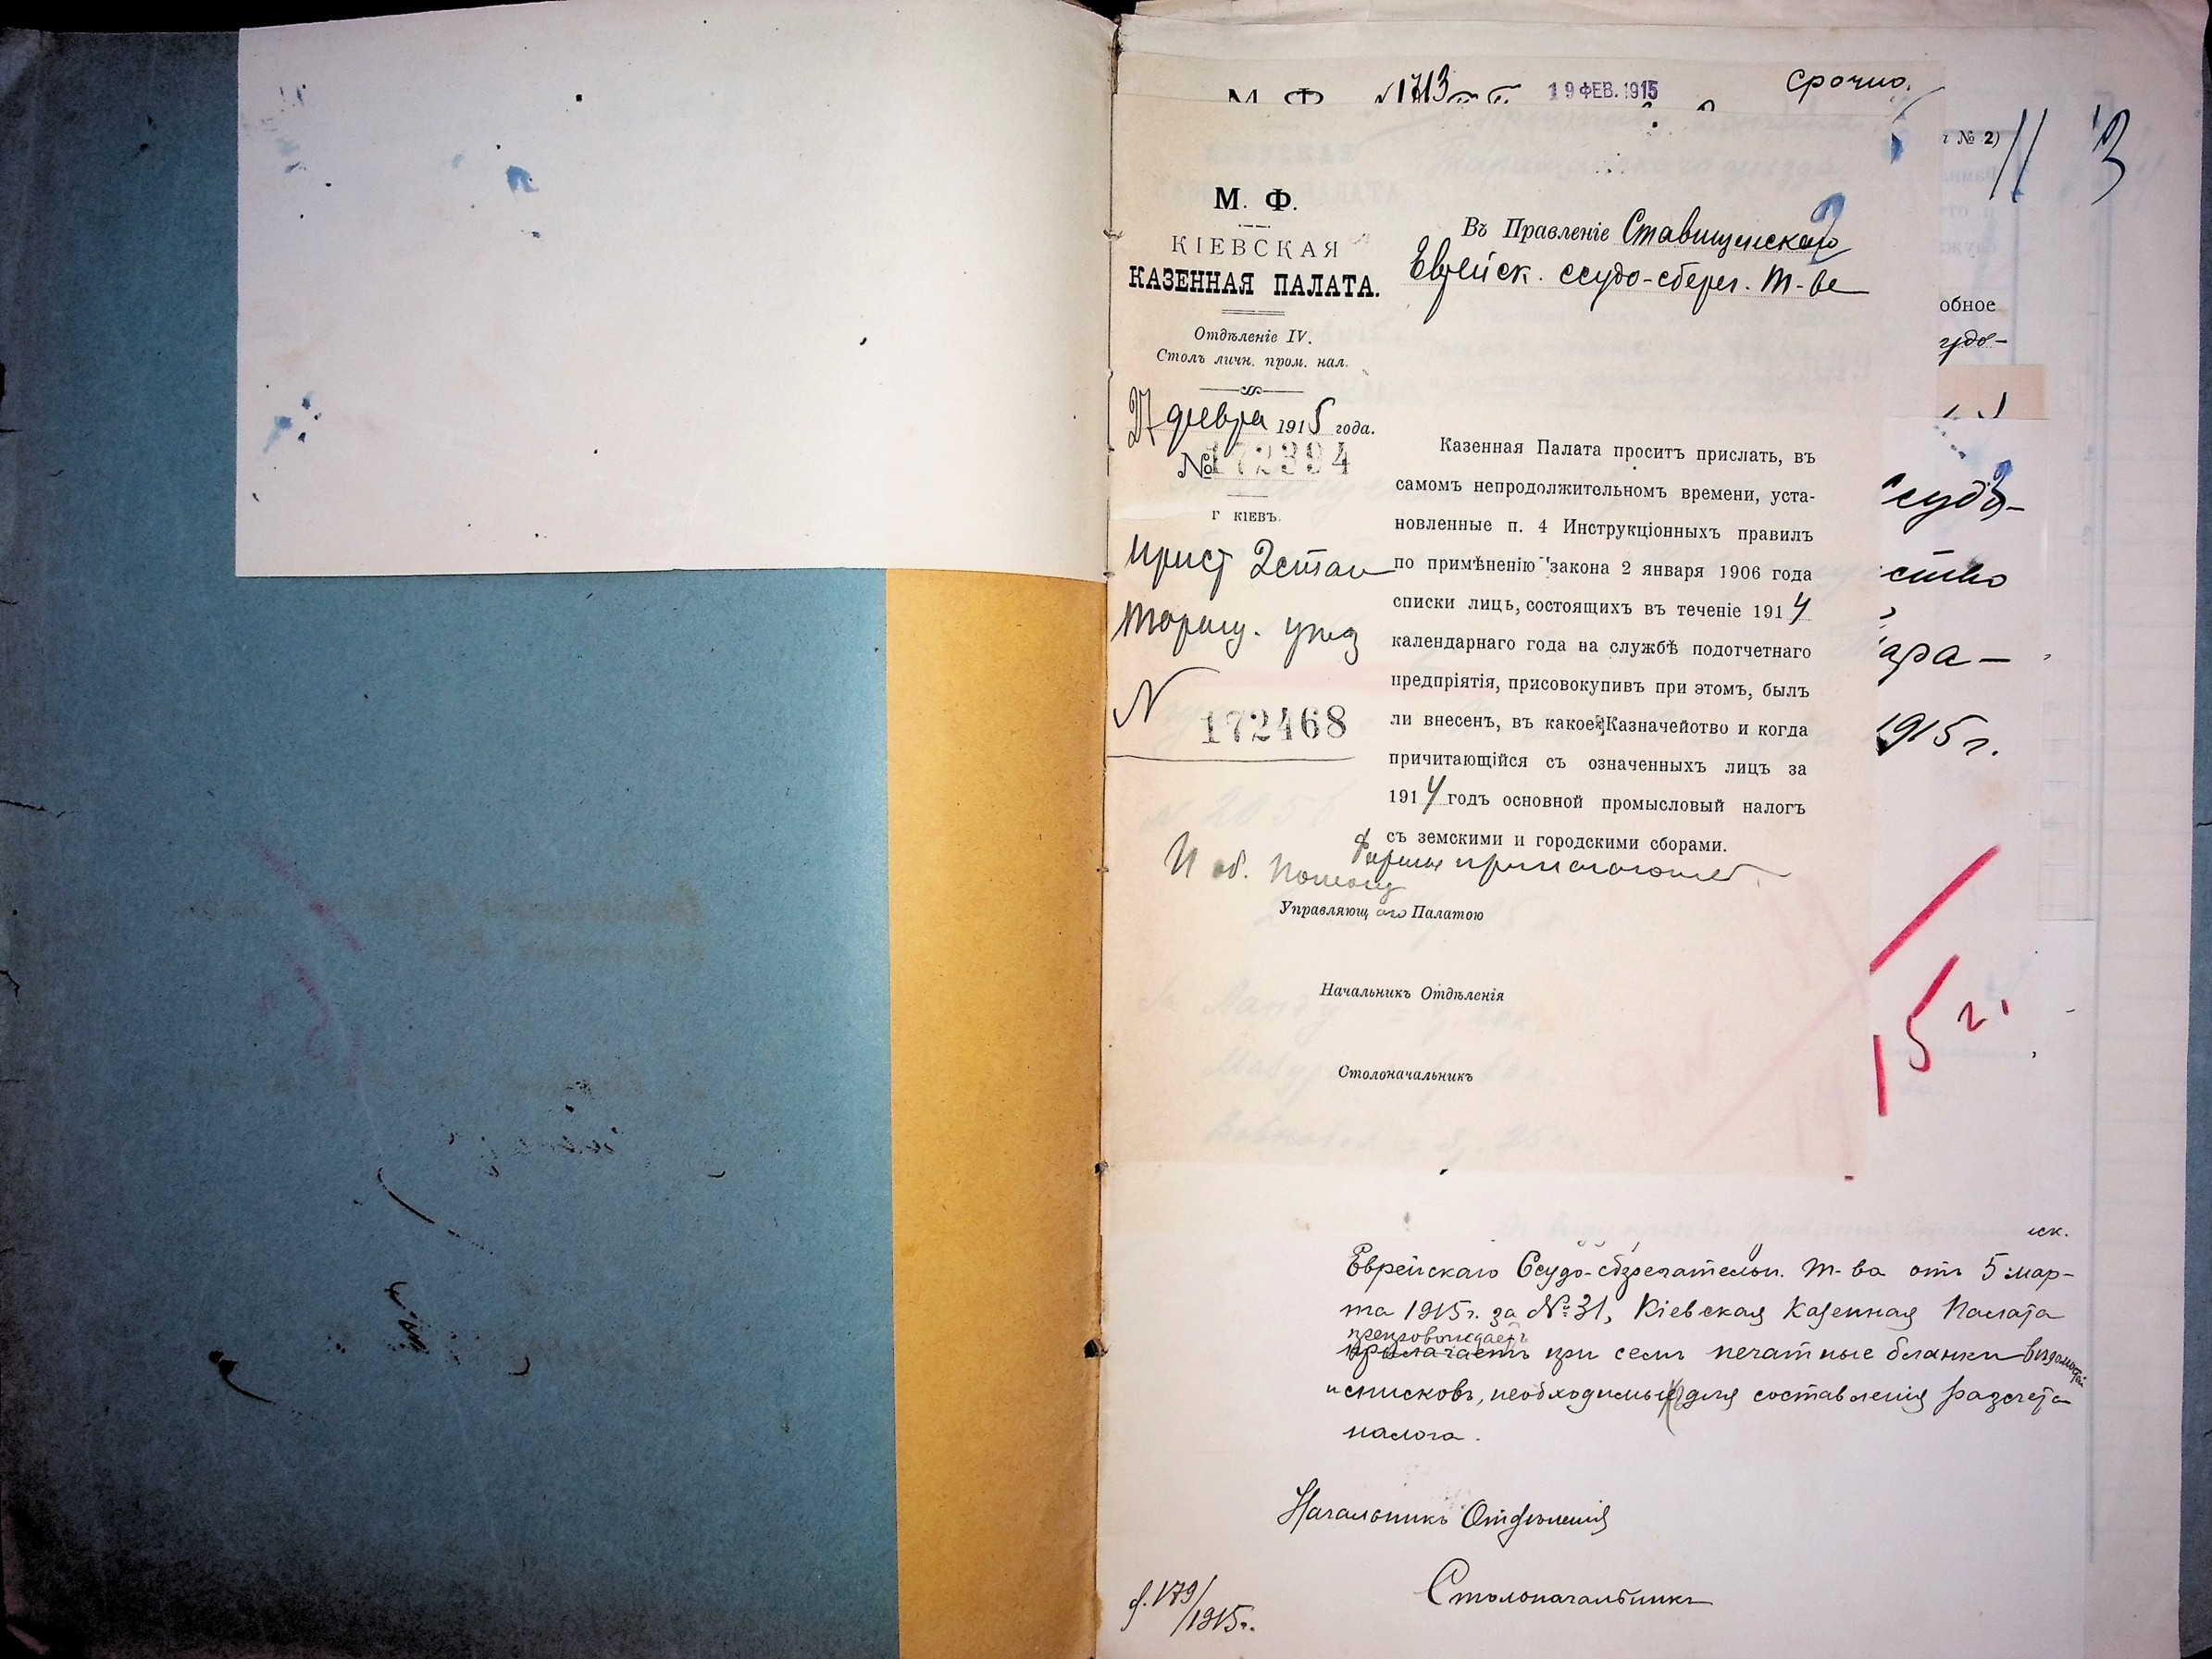 № 1713
19 ФЕВ. 1915
Срочно.
М. Ф.
КІЕВСКАЯ
КАЗЕННАЯ ПАЛАТА.
Отдѣленіе IV.
Столъ личн. пром. нал.
27 февра 1915 года.
№ 172394
г. КІЕВЪ.
Прист 2 стан
Таращ. уѣз
N 172468
Въ Правленіе Ставищенскаго
Еврейск. ссудо-сберег. т-ва
Казенная Палата проситъ прислать, въ
самомъ непродолжительномъ времени, уста-
новленные п. 4 Инструкціонныхъ правилъ
по примѣненію закона 2 января 1906 года
списки лицъ, состоящихъ въ теченіе 1914
календарнаго года на службѣ подотчетнаго
предпріятія, присовокупивъ при этомъ, былъ
ли внесенъ, въ какое Казначейство и когда
причитающійся съ означенныхъ лицъ за
1914 годъ основной промысловый налогъ
съ земскими и городскими сборами.
И об.
Управляющаго Палатою
Начальникъ Отдѣленія
Столоначальникъ
№ 2)
11 3
обное
судо-
ссудо-
ство
ара-
1915 г.
15 г.
иск.
Еврейскаго Ссудо-сберегательн. т-ва отъ 5 мар-
та 1915 г. за № 31, Кіевская Казенная Палата
препровождаетъ
прилагаетъ при семъ печатные бланки вѣдомостей
и списковъ, необходимые для составленія разсчета
налога.
Начальникъ Отдѣленія
Столоначальникъ
д. 179/1915 г.